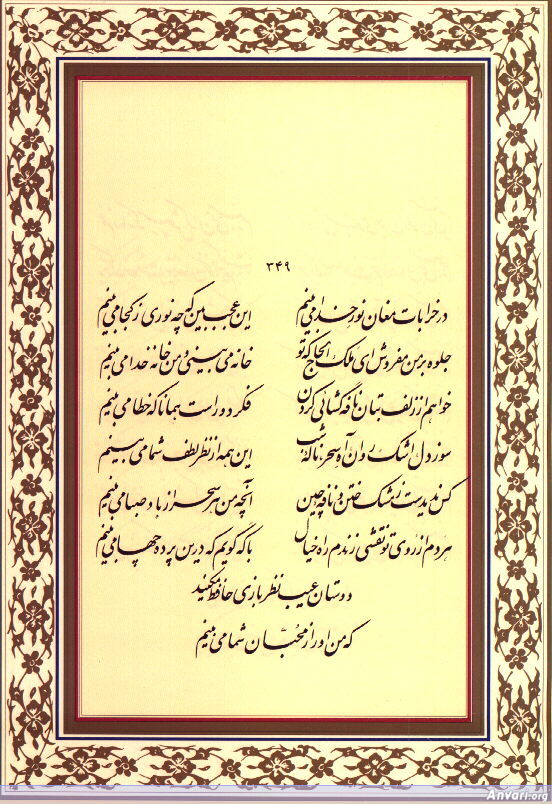 ۳۴۹
در خرابات مغان نور خدا می بینم این عجب بین که چه نوری ز کجا می بینم
جلوه بر من مفروش ای ملک الحاج که تو خانه می بینی و من خانه خدا می بینم
خواهم از زلف بتان نافه گشائی کردن فکر دور است همانا که خطا می بینم
سوز دل اشک روان آه سحر ناله شب این همه از نظر لطف شما می بینم
کس ندیدست ز مشک ختن و نافه چین آنچه من هر سحر از باد صبا می بینم
هر دم از روی تو نقشی زندم راه خیال با که گویم که درین پرده چها می بینم
دوستان عیب نظر بازی حافظ مکنید
که من او را ز محبان شما می بینم
Anvari.org